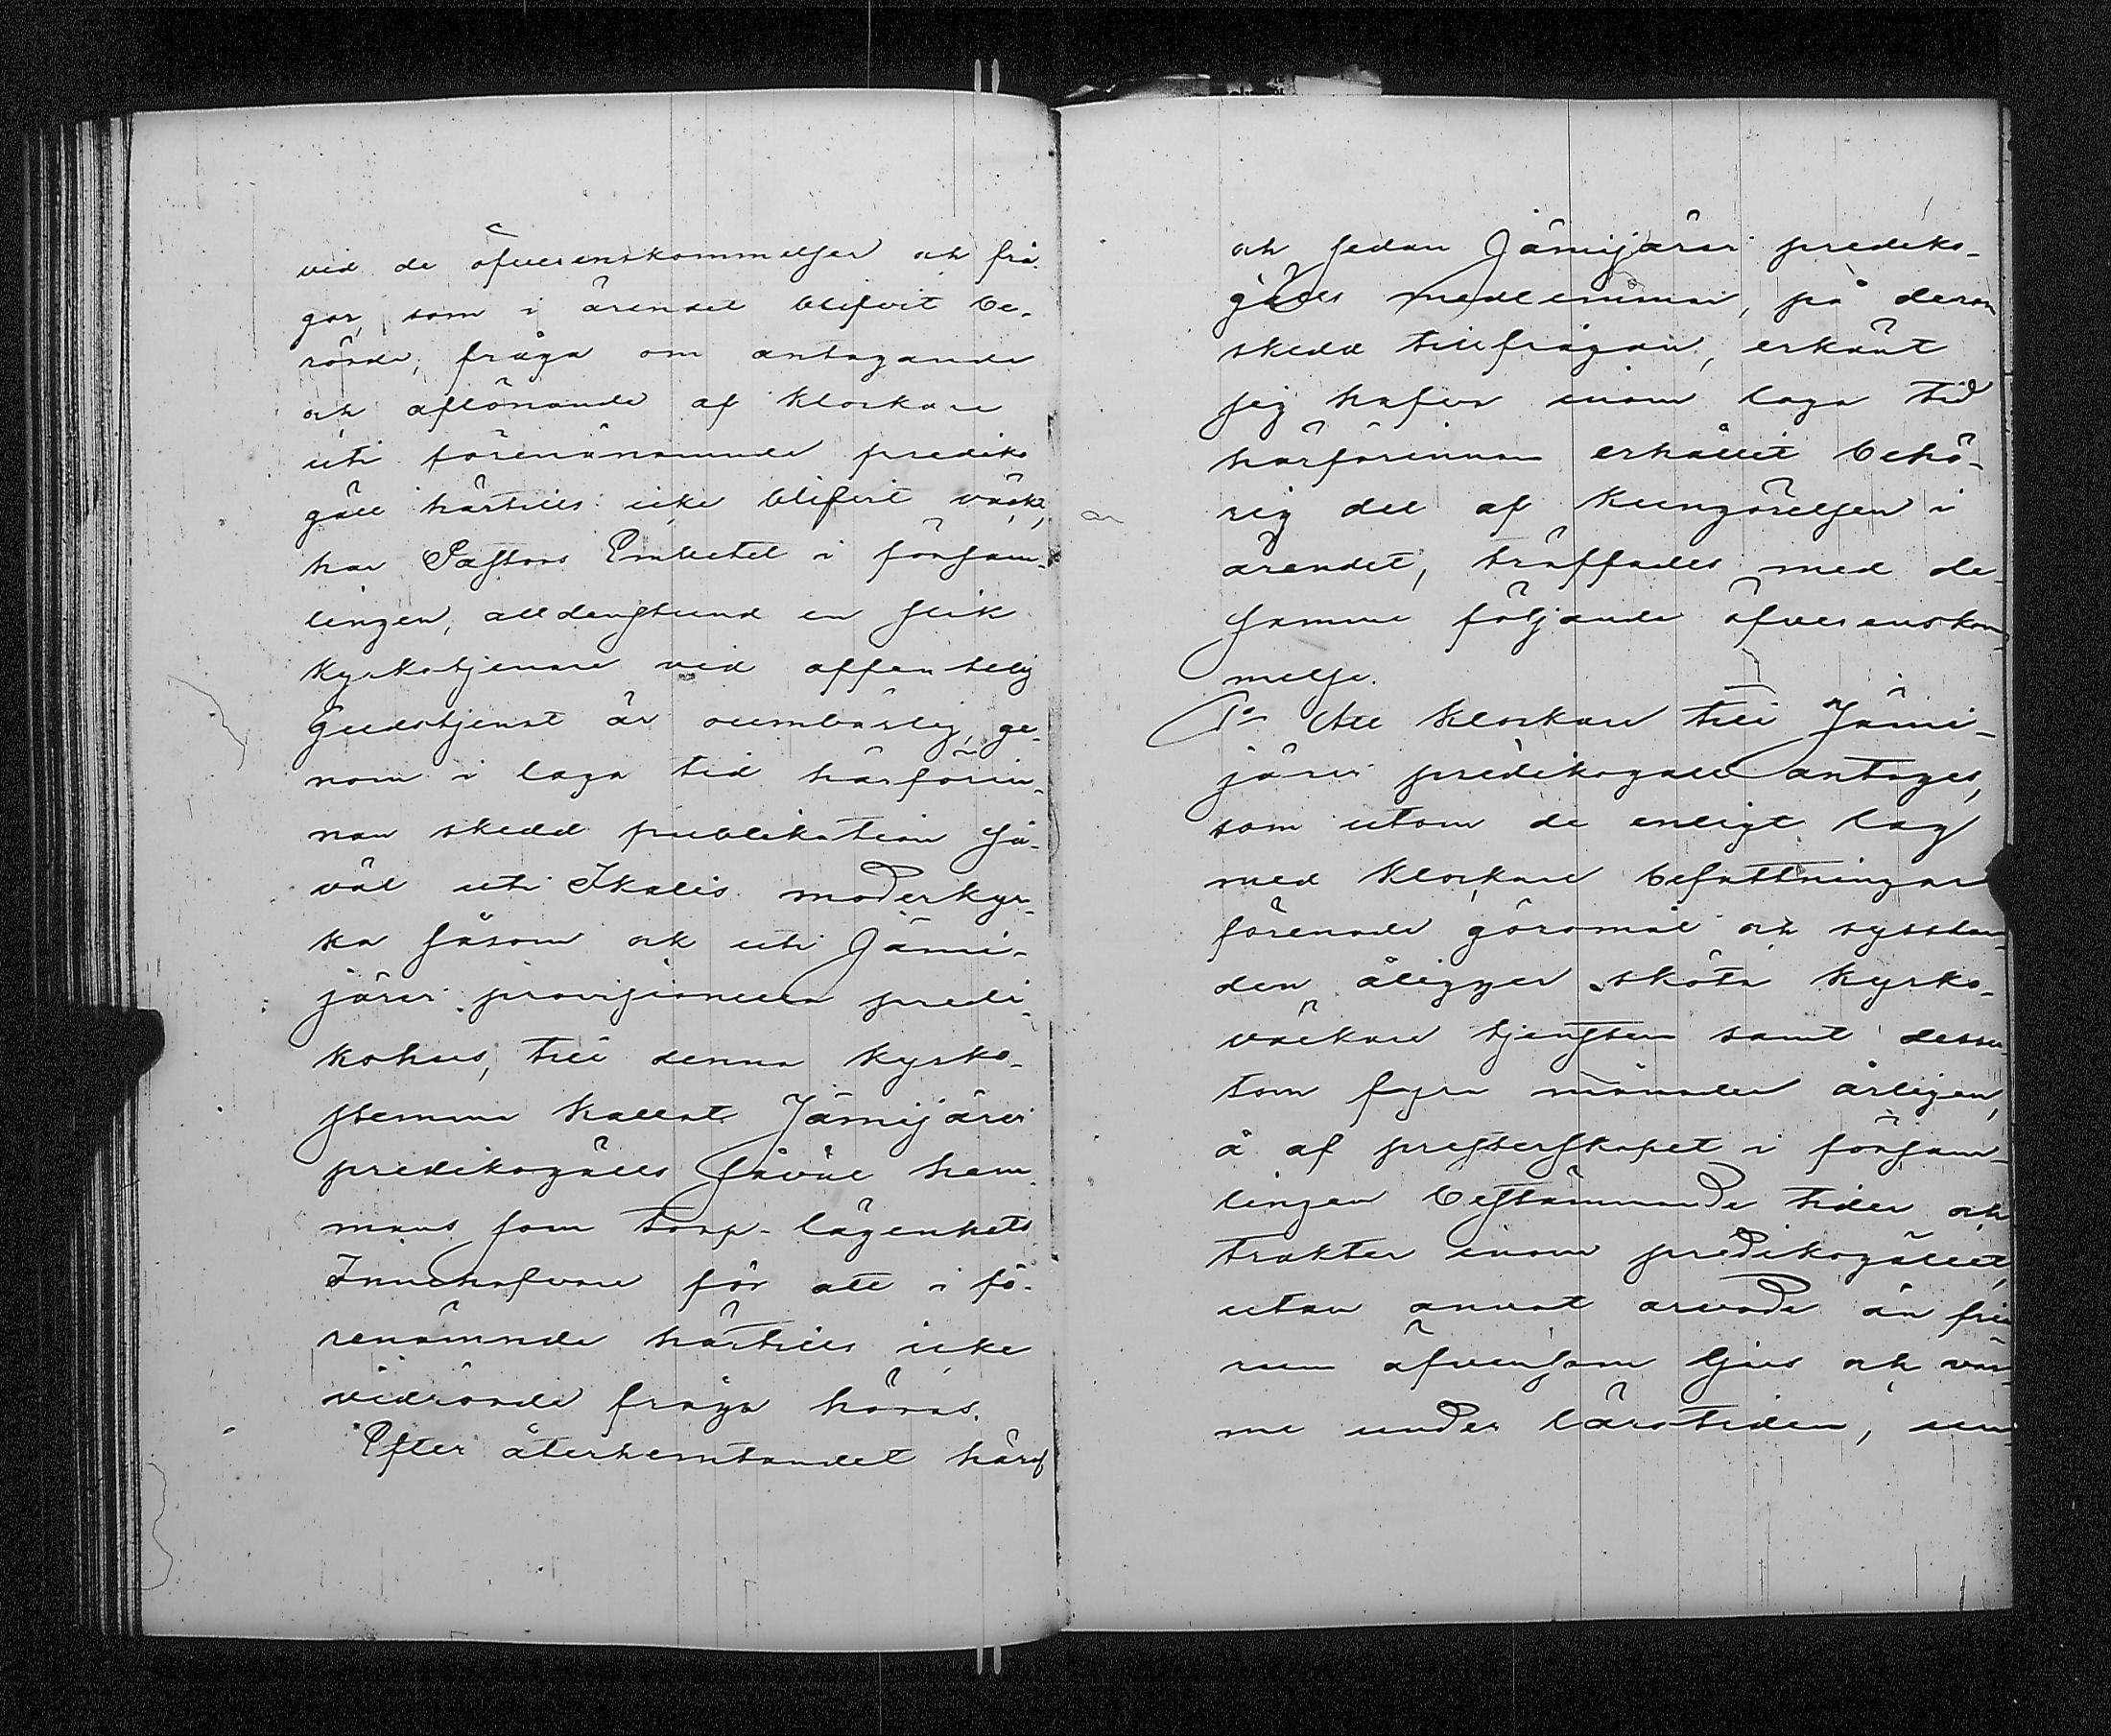 vid de öfverenskommelser och frå-
gor, som i ärendet blifvit be-
rörde, fråga om antagande
och aflönande af klockare
uti förenämnde prediko
gäll härtills icke blifvit väckt,
har Pastors Embetet i försam-
lingen, alldenstund en slik
kyrkotjenare vid offentelig
Gudstjenst är oumbärlig, ge-
nom i laga tid härförin-
nan skedd publikation så-
väl uti Ikalis moderkyr-
ka såsom ock uti Jämi-
järvi provisionella predi-
kohus, till denna kyrko-
stemma kallat Jämijärvi
predikogälls såväl hem-
mans som torp-lägenhets
Innehafvare för att i fö-
renämnde härtills icke
vidrörde fråga höras.
Efter återhemtandet häraf
och sedan Jämijärvi prediko-
gälls medlemmar, på derom
skedd tillfrågan, erkänt
sig hafva inom laga tid
härförinnan erhållit behö-
rig del af kungörelsen i
ärendet, träffades med de-
samma följande öfverenskom-
melse.
1o Att klockare till Jämi-
järvi predikogäll antages,
som utom de enligt lag
med klockare befattningar
förenade göromål och sysslan-
den åligger sköta kyrko-
väktare tjensten samt dessu-
tom fyra månader årligen,
å af presterskapet i försam-
lingen bestämmande tider och
trakter inom predikogället,
utan annat arvode än fria
rum äfvensom ljus och vär-
me under lärotiden, un-